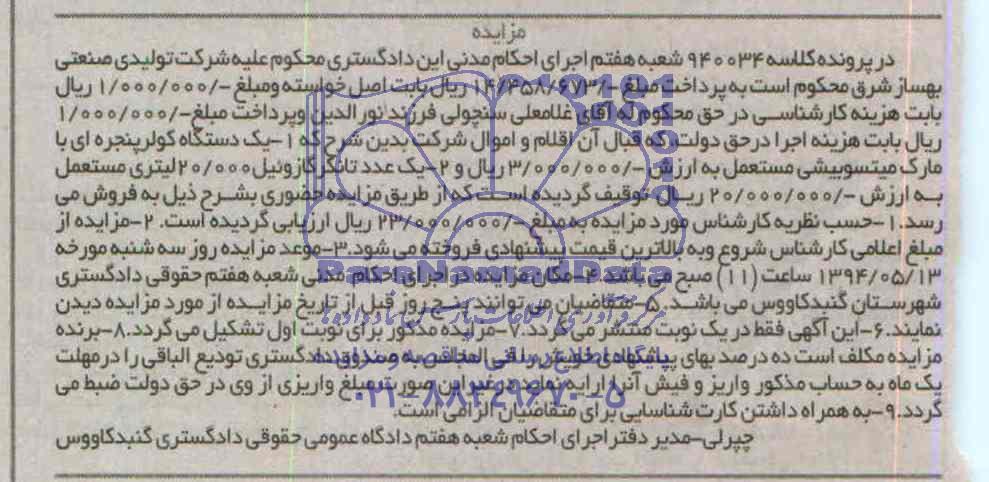 مزایده
در پرونده کلاسه ۹۴۰۰۳۴ شعبه هفتم اجرای احکام مدنی این دادگستری محکوم علیه شرکت تولیدی صنعتی
بهساز شرق محکوم است به پرداخت مبلغ -/۱۴/۴۵۸/۶۷۳ ریال بابت اصل خواسته ومبلغ -/۱/۰۰۰/۰۰۰ ریال
بابت هزینه کارشناسی در حق محکوم له آقای غلامعلی سنچولی فرزند نور الدین وپرداخت مبلغ -/۱/۰۰۰/۰۰۰
ریال بابت هزینه اجرا در حق دولت که قبال آن اقلام و اموال شرکت بدین شرح که ۱-یک دستگاه کولر پنجره ای با
مارک میتسوبیشی مستعمل به ارزش -/۳/۰۰۰/۰۰۰ ریال و ۲-یک عدد تانکر گازوئیل ۲۰/۰۰۰ لیتری مستعمل
به ارزش -/۲۰/۰۰۰/۰۰۰ ریال توقیف گردیده است که از طریق مزایده حضوری بشرح ذیل به فروش می
رسد. ۱-حسب نظریه کارشناس مورد مزایده به مبلغ -/۲۳/۰۰۰/۰۰۰ ریال ارزیابی گردیده است. ۲-مزایده از
مبلغ اعلامی کارشناس شروع وبه بالاترین قیمت پیشنهادی فروخته می شود. ۳-موعد مزایده روز سه شنبه مورخه
۱۳۹۴/۰۵/۱۳ ساعت (۱۱) صبح می باشد. ۴-مکان مزایده در اجرای احکام مدنی شعبه هفتم حقوقی دادگستری
شهرستان گنبدکاووس می باشد. ۵-متقاضیان می توانند پنج روز قبل از تاریخ مزایده از مورد مزایده دیدن
نمایند. ۶-این آگهی فقط در یک نوبت منتشر می گردد. ۷-مزایده مذکور برای نوبت اول تشکیل می گردد. ۸-برنده
مزایده مکلف است ده درصد بهای پیشنهادی خویش را فی المجلس به صندوق دادگستری تودیع الباقی را در مهلت
یک ماه به حساب مذکور واریز و فیش آنرا ارایه نماید در غیر این صورت مبلغ واریزی از وی در حق دولت ضبط می
گردد. ۹-به همراه داشتن کارت شناسایی برای متقاضیان الزامی است.
چپرلی-مدیر دفتر اجرای احکام شعبه هفتم دادگاه عمومی حقوقی دادگستری گنبدکاووس
ParsNamadData
۰۲۱-۸۸۳۴۹۶۷۰-۵